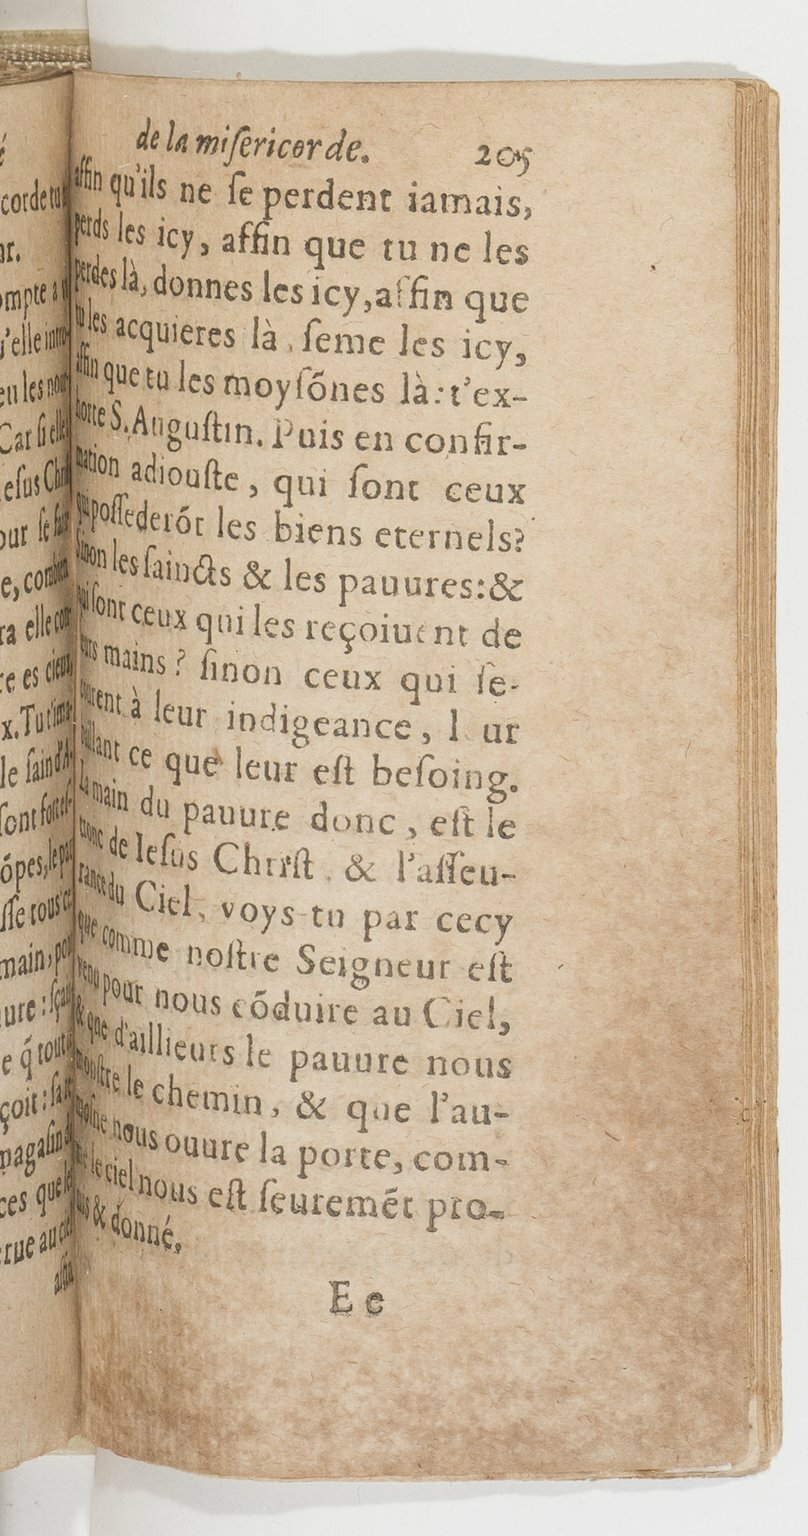 de la miſericorde. 205
affin qu'ils ne ſe perdent iamais,
perds les icy, affin que tu ne les
perdes là, donnes les icy, affin que
tu les acquieres là, ſeme les icy,
affin que tu les moyſónes là: t'ex-
horte S. Auguſtin. Puis en confir-
mation adiouſte, qui ſont ceux
qui poſſederót les biens eternels?
ſinon les ſaincts & les pauures: &
qui ſont ceux qui les reçoiuent de
leurs mains? ſinon ceux qui ſe-
à leur indigeance, l ur
ce que leur eſt beſoing.
La main du pauure donc, eſt le
tronc de Ieſus Chriſt, & l'aſſeu-
rance du Ciel, voys-tu par cecy
que comme noſtre Seigneur eſt
venu pour nous códuire au Ciel,
& que d'aillieurs le pauure nous
monſtre le chemin, & que l'au-
moſne nous ouure la porte, com-
me le ciel nous eſt ſeuremét pro-
mis & donné,
E e
corde tu
ompte a
j'elle
Car ſi elle
eſus Chri
our ſe
ra elle
re es
x. Tu
le ſainct
ſont
main, po
ure:
e q̃ tout
çoit:
magaſin
ces que
affin